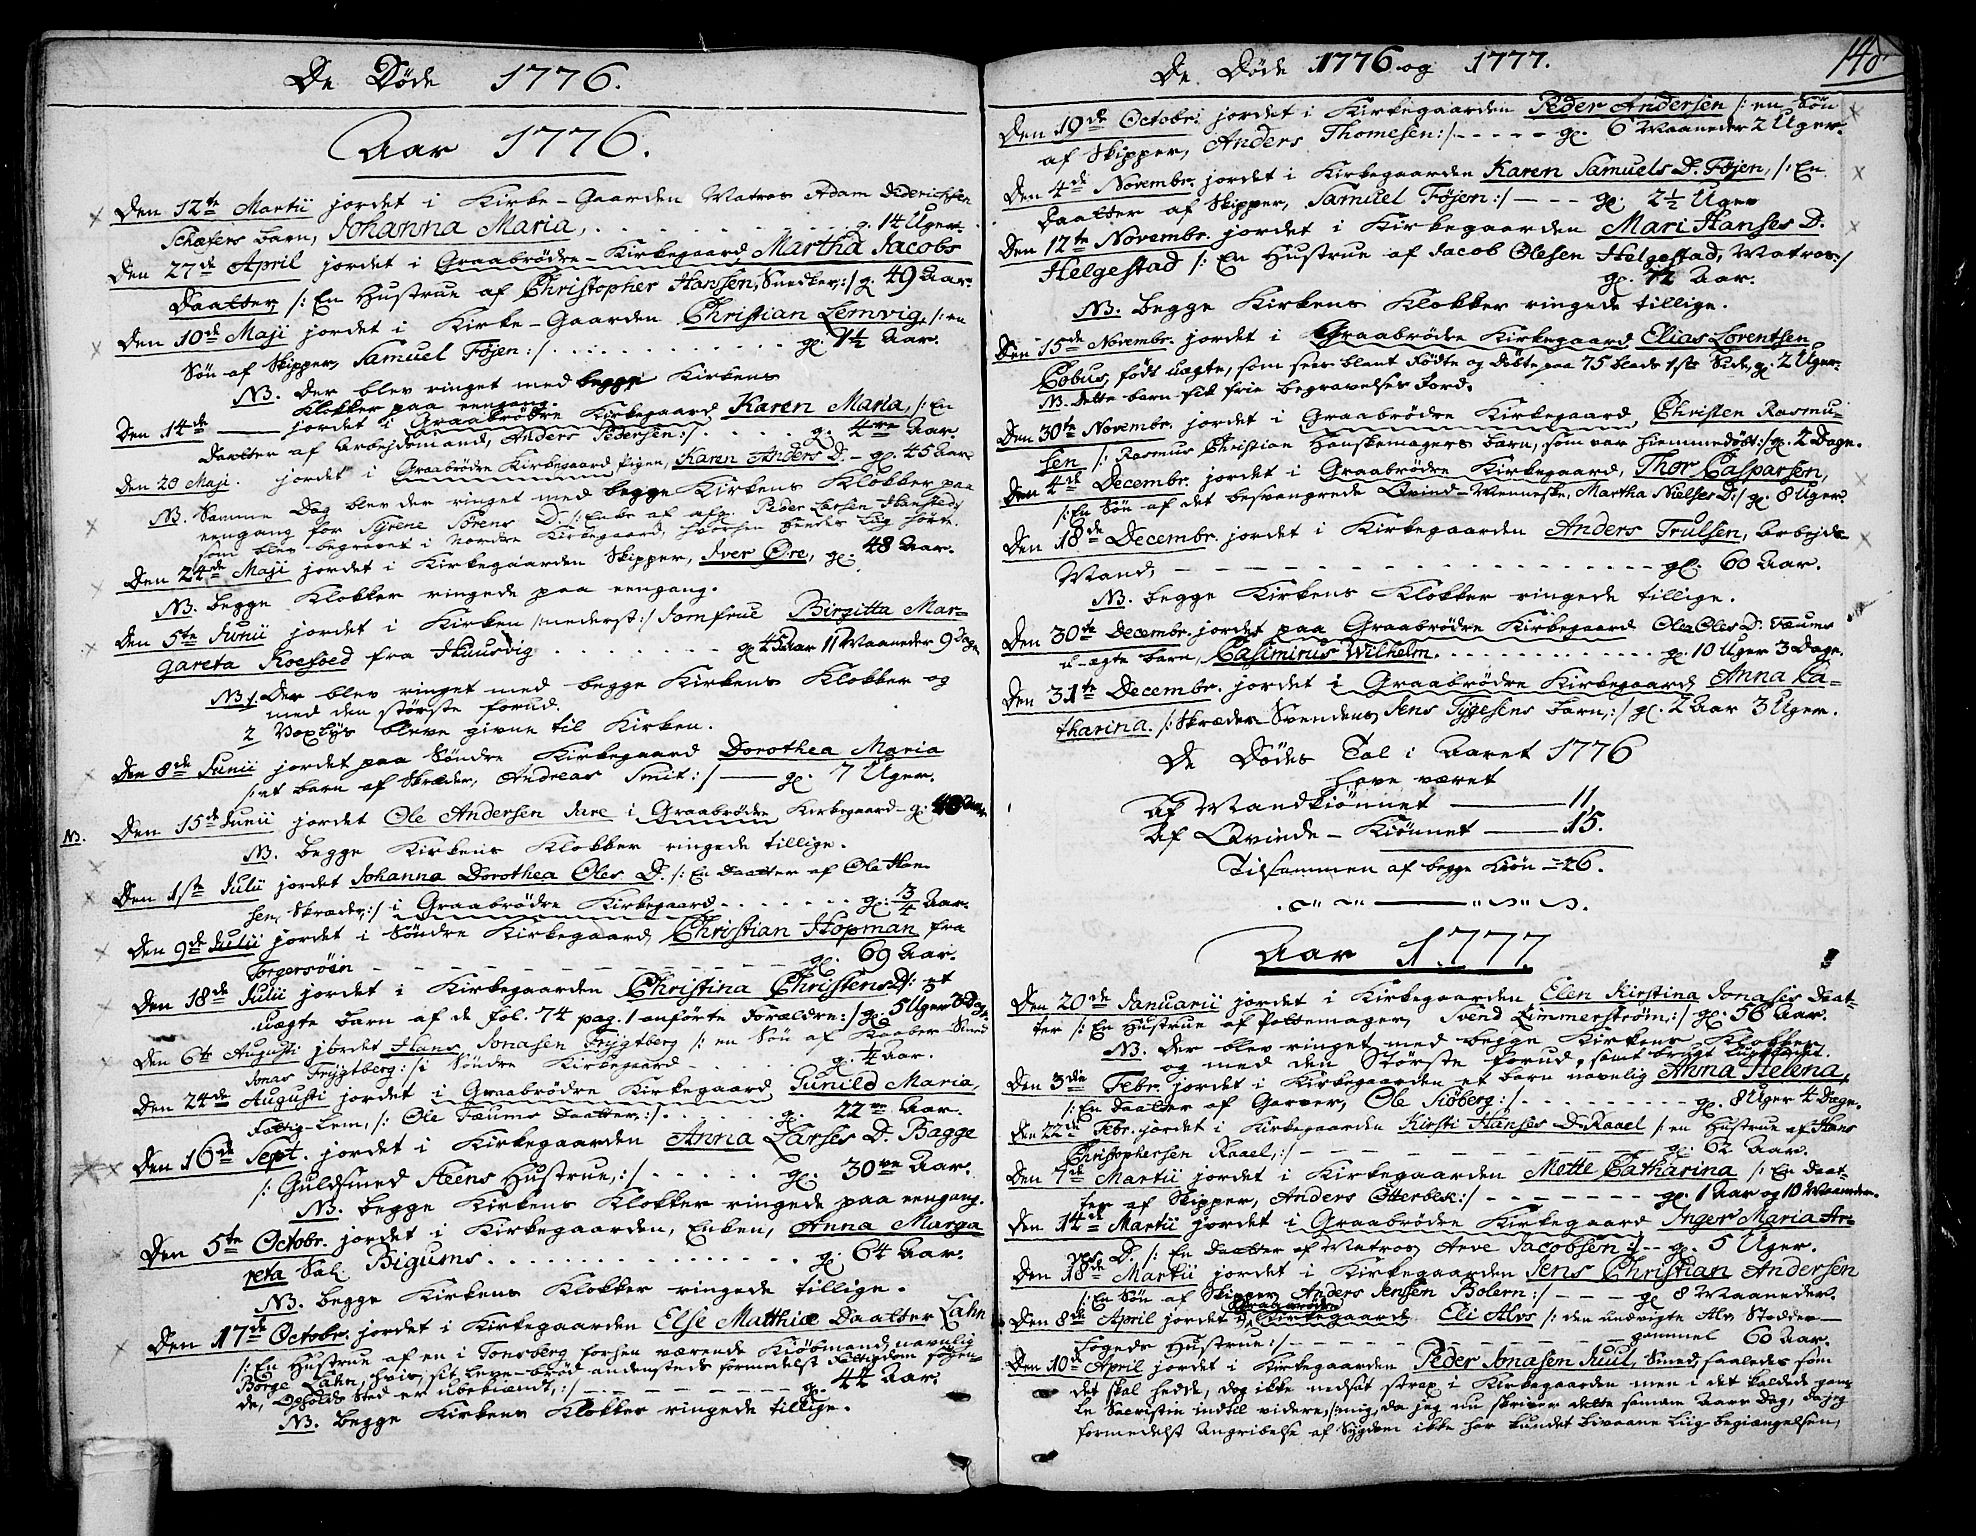 De Døde 1776.
Aar 1776.
Den 12te Martii jordet i Kirke-Gaarden Matros Adam Diderichsen
Schæfers barn, Johanna Maria, . . . . . . . . g. 14 Uger.
Den 27de April jordet i Graabrødre-Kirkegaard Martha Jacobs
Daatter, /: En Hustrue af Christopher Hanssen, Snedker :/ g. 49 Aar.
Den 10de Maji jordet i Kirke-Gaarden Christian Lemvig, /: en
Søn af Skipper, Samuel Føjen :/ . . . . . . . . gl. 1½ Aar.
NB. Der blev ringet med begge Kirkens
Klokker paa eengang.
Den 14de —— jordet i Graabrødre Kirkegaard Karen Maria, /: En
Daatter af Arbejdsmand, Anders Pedersen :/ . . . . g. 4re Aar.
Den 20 Maji. jordet i Graabrødre Kirkegaard Pigen, Karen Anders D. – gl. 45 Aar
NB. Samme Dag blev der ringet med begge Kirkens Klokker paa
eengang for Sÿrene Sørens D. /: Enke af afg. Peder Larsen Hansted :/
som blev begravet i Nordre Kirkegaard, hvorhen hendes Liig førte.
Den 24de Maji jordet i Kirkegaarden Skipper, Iver Øre, gl. 48 Aar.
NB. begge Klokker ringede paa eengang.
Den 5te Junii jordet i Kirken /: nederst :/ Jomfrue Birgitta Mar-
gareta Koefoed fra Huusvig . . . . . . gl 45 Aar 11 Maaneder 9 Dage
NB 1. Der blev ringet med begge Kirkens Klokker og
med den største forud.
2 Voxlys bleve givne til Kirken.
Den 8de Junii jordet paa Søndre Kirkegaard Dorothea Maria
/: et barn af Skræder, Andreas Smit :/ —— gl. 7 Uger.
NB. Den 15de Junii jordet Ole Andersen Aare i Graabrødre Kirkegaard – g. 40
NB. begge Kirkens Klokker ringede tillige.
Den 1ste Julii jordet Johanna Dorothea Oles D. /: En Daatter af Ole Han-
sen, Skræder, :/ i Graabrødre Kirkegaard . . . . . . . gl. ¾ Aar.
Den 9de Julii jordet i Søndre Kirkegaard Christian Hopman fra
Torgersøen – – – – – – – – – gl. 69 Aar.
Den 18de Julii jordet i Kirkegaarden Christina Christens D /: et
uægte barn af de fol. 74 pag. 1 anførte Forældre :/ gl. 5 Uger 3 Dage
Den 6te Augusti jordet Hans Jonasen Frÿgtberg /: en Søn af Kaaber Smed
Jonas Frÿgtberg :/ i Søndre Kirkegaard – . . . . . . g. ¼ Aar.
Den 24de Augusti jordet i Graabrødre Kirkegaard Gunild Maria,
Fattig-Lem, /: Ole Faums Daatter, :/ . . . . . . . g. 22ve Aar.
Den 16de Sept. jordet i Kirkegaarden Anna Larses D. Bagge
/: Guldsmed Steens Hustrue, :/ . . . . . gl. 30ve Aar.
NB. begge Kirkens Klokker ringede paa eengang.
Den 5te Octobr. jordet i Kirkegaarden, Enken, Anna Marga
reta Sal. Bigums . . . . . . . . . . . g. 64 Aar.
NB. begge Kirkens Klokker ringede tillige.
Den 17de Octobr. jordet i Kirkegaarden Else Matthiæ Daatter Lahn
/: En Hustrue af en i Tønsberg forhen værende Kiøbmand navnlig
Børge Lahn, hvis sit leve-brød andensteds formedelst Fattigdom søgen-
de, Opholds Sted er ubekiendt, :/ – . – – – – – – gl. 44 Aar.
NB. begge Kirkens Klokker ringede tillige.
De Døde 1776 og 1777. 148.
Den 19de Octobr. jordet i Kirkegaarden Peder Andersen /: en Søn
af Skipper, Anders Thomesen :/ – – – – – gl. 6 Maaneder 2 Uger.
Den 4de Novembr. jordet i Kirkegaarden Karen Samuels D. Føjen, /: En
Daatter af Skipper, Samuel Føjen :/ – – – gl. 2½ Uger
Den 12te Novembr. jordet i Kirkegaarden Mari Hanses D.
Helgestad /: En Hustrue af Jacob Olesen Helgestad, Matros :/
gl. 72 Aar.
NB. begge Kirkens Klokker ringede tillige.
Den 15de Novembr. jordet i Graabrødre Kirkegaard Elias Lorentsen
Cobus, født uægte, som sees blant Fødte og Døbte paa 75 blads 1ste Side, g. 2 Uger.
NB. dette barn fik frie begravelses Jord.
Den 30te Novembr. jordet i Graabrødre Kirkegaard Christen Rasmu-
sen /: Rasmus Christian Hanskemagers barn, som var hiemmedøbt :/ gl. 2 Dage.
Den 4de Decembr. jordet i Graabrødre Kirkegaard, Thor Casparsen,
/: En Søn af det besvangrede Qvind-Menneske, Martha Nielses D :/ gl. 8 Uger.
Den 18de Decembr. jordet i Kirkegaarden Anders Trulsen, Arbejds-
Mand, – – – – – – – – – – – – – gl. 60 Aar.
NB. begge Kirkens Klokker ringede tillige.
Den 30te Decembr. jordet paa Graabrødre Kirkegaard Olea Oles D. Fæums
u-ægte barn, Casimirus Wilhelm. . . . . . . . . . g. 10 Uger 3 Dage.
Den 31te Decembr. jordet i Graabrødre Kirkegaard Anna Ca-
tharina. /: Skræder Svendens Jens Tÿgesens barn, :/ gl. 2 Aar 3 Uger.
De Dødes Tal i Aaret 1776
have været
Af Mandkiønnet —— 11,
Af Qvinde-Kiønnet —— 15.
Tilsammen af begge Kiøn = 26.
Aar 1777.
Den 20de Januarii jordet i Kirkegaarden Elen Kirstina Jonases Daat-
ter /: En Hustrue af Pottemager, Svend Zimmerstrøm, :/ gl. 56 Aar.
NB. Der blev ringet med begge Kirkens Klokker
og med den Største forud, samt brugt
Den 3die Febr. jordet i Kirkegaarden et barn navnlig Anna Helena,
/: En Daatter af Garver, Ole Sioberg :/ . – – – – – – gl. 8 Uger 4 Dage.
Den 22de Febr. jordet i Kirkegaarden Kirsti Hanses D. Raael /: en Hustrue af Hans
Christophersen Raael, :/ – – – – – – – gl. 62 Aar.
Den 7de Martii jordet i Kirkegaarden Mette Catharina /: En Daat-
ter af Skipper, Anders Otterbek :/ – – – – – – gl. 1 Aar og 10 Maaneder.
Den 14de Martii jordet i Graabrødre Kirkegaard Inger Maria Ar-
ves D. /: En Daatter af Matros Arve Jacobsen :/ – – gl. 5 Uger.
Den 18de Martii jordet i Kirkegaarden Jens Christian Andersen
/: En Søn af Skipper Anders Jensen Bolern :/ – – – gl 8 Maaneder.
Den 8de April jordet i Graabrødre Kirkegaard Eli Alvs /: den undvigte Alv Stodder-
Fogeds Hustrue :/ – – – – – – gammel 60 Aar.
Den 10de April jordet i Kirkegaarden Peder Jonasen Juul, Smed, saaledes som
det skal hedde, dog ikke nedsat strax i Kirkegaarden men i det kaldede gam-
le Sacristie indtil videre, /: mig, da jeg nu skriver dette samme Aars Dag, da jeg
formedelst Angribelse af Sÿgdom ikke har kundet bivaane Liig-begiængelsen,